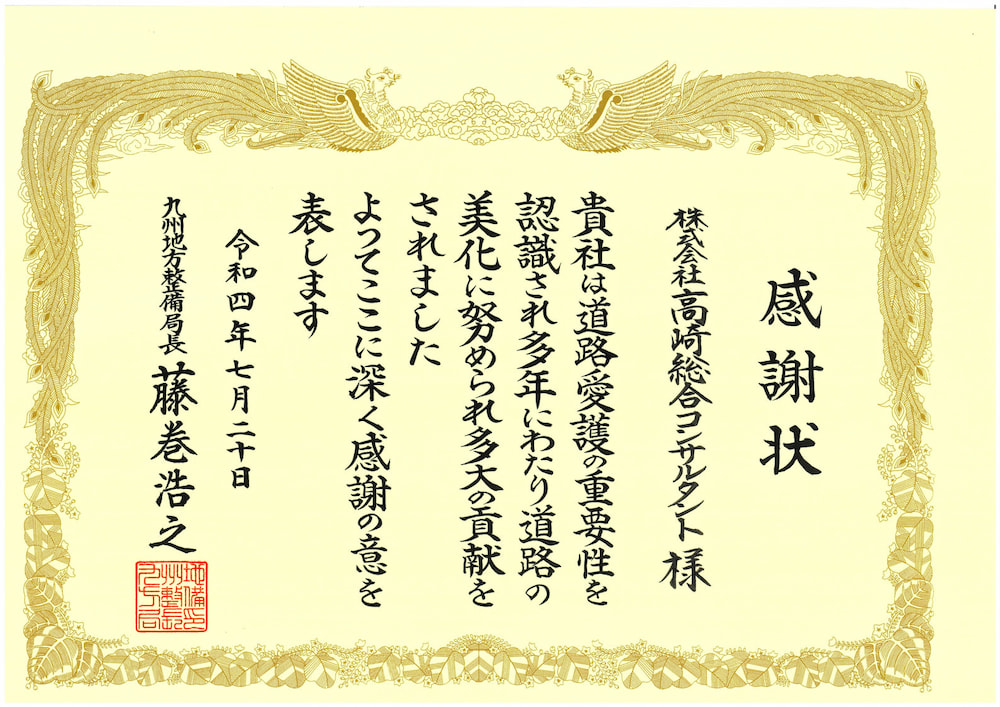 感謝状
株式会社高崎総合コンサルタント様
貴社は道路愛護の重要性を
認識され多年にわたり道路の
美化に努められ多大の貢献を
されました
よってここに深く感謝の意を
表します
令和四年七月二十日
九州地方整備局長 藤巻浩之